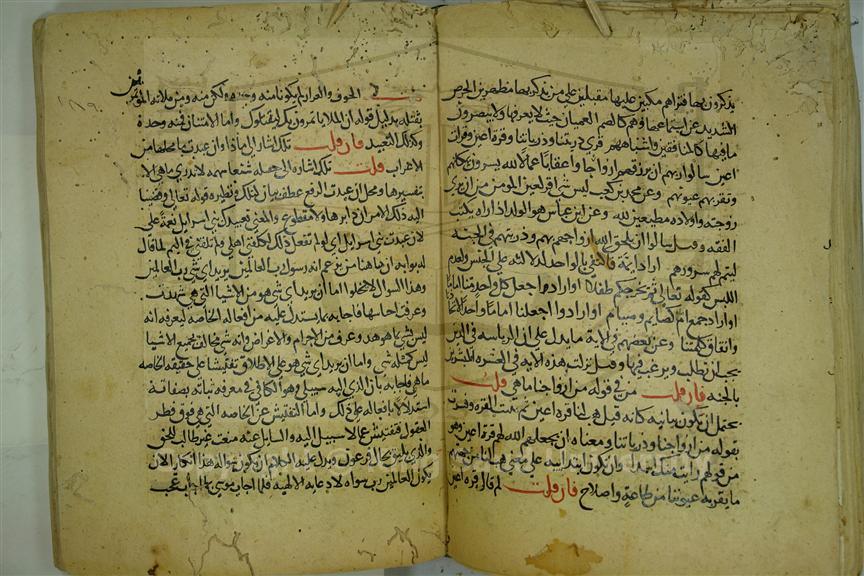 يذكرون بها فتراهم مكبين عليها مقبلين على من يذكر بها مظهرين الحرص
الشديد عن استماعها وهم كالصم العميان حيث لا يعونها ولا يتبصرون
ما فيها كالمنافقين واشباههم قرئ ذريتنا وذرياتنا وقرة اعين وقرات
اعين سالوا ربهم ان يرزقهم ازواجا واعقابا عمالا لله يسرون بمكانهم
وتقر بهم عيونهم وعن محمد بن كعب ليس شي اقر لعين المومن من ان يرى
زوجته واولاده مطيعين لله وعن ابن عباس هو الولد اذا راه يكتب
الفقه وقيل سالوا ان يلحق الله ازواجهم بهم وذريتهم في الجنة
ليتم لهم سرورهم اراد ائمة فاكتفى بالواحد لدلالته على الجنس ولعدم
اللبس كقوله تعالى ثم يخرجكم طفلا او ارادوا اجعل كل واحد منا اماما
او اراد جمع ام كصايم وصيام او ارادوا اجعلنا اماما واحدا
واتفاق كلمتنا وعن بعضهم في الاية ما يدل على ان الرياسة في الدين
يجب ان تطلب ويرغب فيها وقيل نزلت هذه الاية في العشرة المبشرين
بالجنة فان قلت من في قوله من ازواجنا ما هي قلت
يحتمل ان تكون بيانية كانه قيل هب لنا قرة اعين ثم بينت القرة وفسرت
بقوله من ازواجنا وذرياتنا ومعناه ان يجعلهم الله لهم قرة اعين وهو
من قولهم رايت منك اسدا وان تكون ابتدايية على معنى هب لنا من جهتهم
ما تقر به عيوننا من طاعة وصلاح فان قلت لم قال قرة اعين
الخوف والفرار لم يكونا منه وحده ولكن منه ومن ملائه المؤتمرين
بقتله بدليل قوله ان الملا ياتمرون بك ليقتلوك واما الامتنان فمنه وحده
وكذلك التعبيد فان قلت تلك اشارة الى ماذا وان عبدت ما محلها من
الاعراب قلت تلك اشارة الى خصلة شنعا مبهمة لا يدرى ما هي الا
بتفسيرها ومحل ان عبدت الرفع عطف بيان لتلك ونظيره قوله تعالى وقضينا
اليه ذلك الامر ان دابر هاولا مقطوع والمعنى تعبيدك بني اسرايل نعمة علي
لان عبدت بني اسرايل اي لو لم تفعل ذلك لكفلني اهلي ولم يلقوني في اليم لما قال
له بوابه ان هاهنا من يزعم انه رسول رب العالمين يريد اي شي رب العالمين
وهذا السوال لا يخلو اما ان يريد اي شي هو من الاشيا التي شوهدت
وعرف اجناسها فاجابه بما يستدل عليه من افعاله الخاصة ليعرفه انه
ليس بشي مما شوهد وعرف من الاجرام والاعراض وانه شي مخالف لجميع الاشيا
ليس كمثله شي واما ان يريد اي شي هو على الاطلاق تفتيشا على حقيقته الخاصة
ما هي فاجابه بان الذي اليه سبيل وهو الكافي في معرفته ثباته بصفاته
استدلالا بافعاله على ذلك واما التفتيش عن الخاصة التي هي فوق فطر
العقول فتفتيش عما لا سبيل اليه والسايل عنه متعنت غير طالب للحق
والذي يليق بحال فرعون ويدل عليه الكلام ان يكون سواله هذا انكارا لان
يكون للعالمين رب سواه لادعايه الالهية فلما اجاب موسى بما اجاب عجب